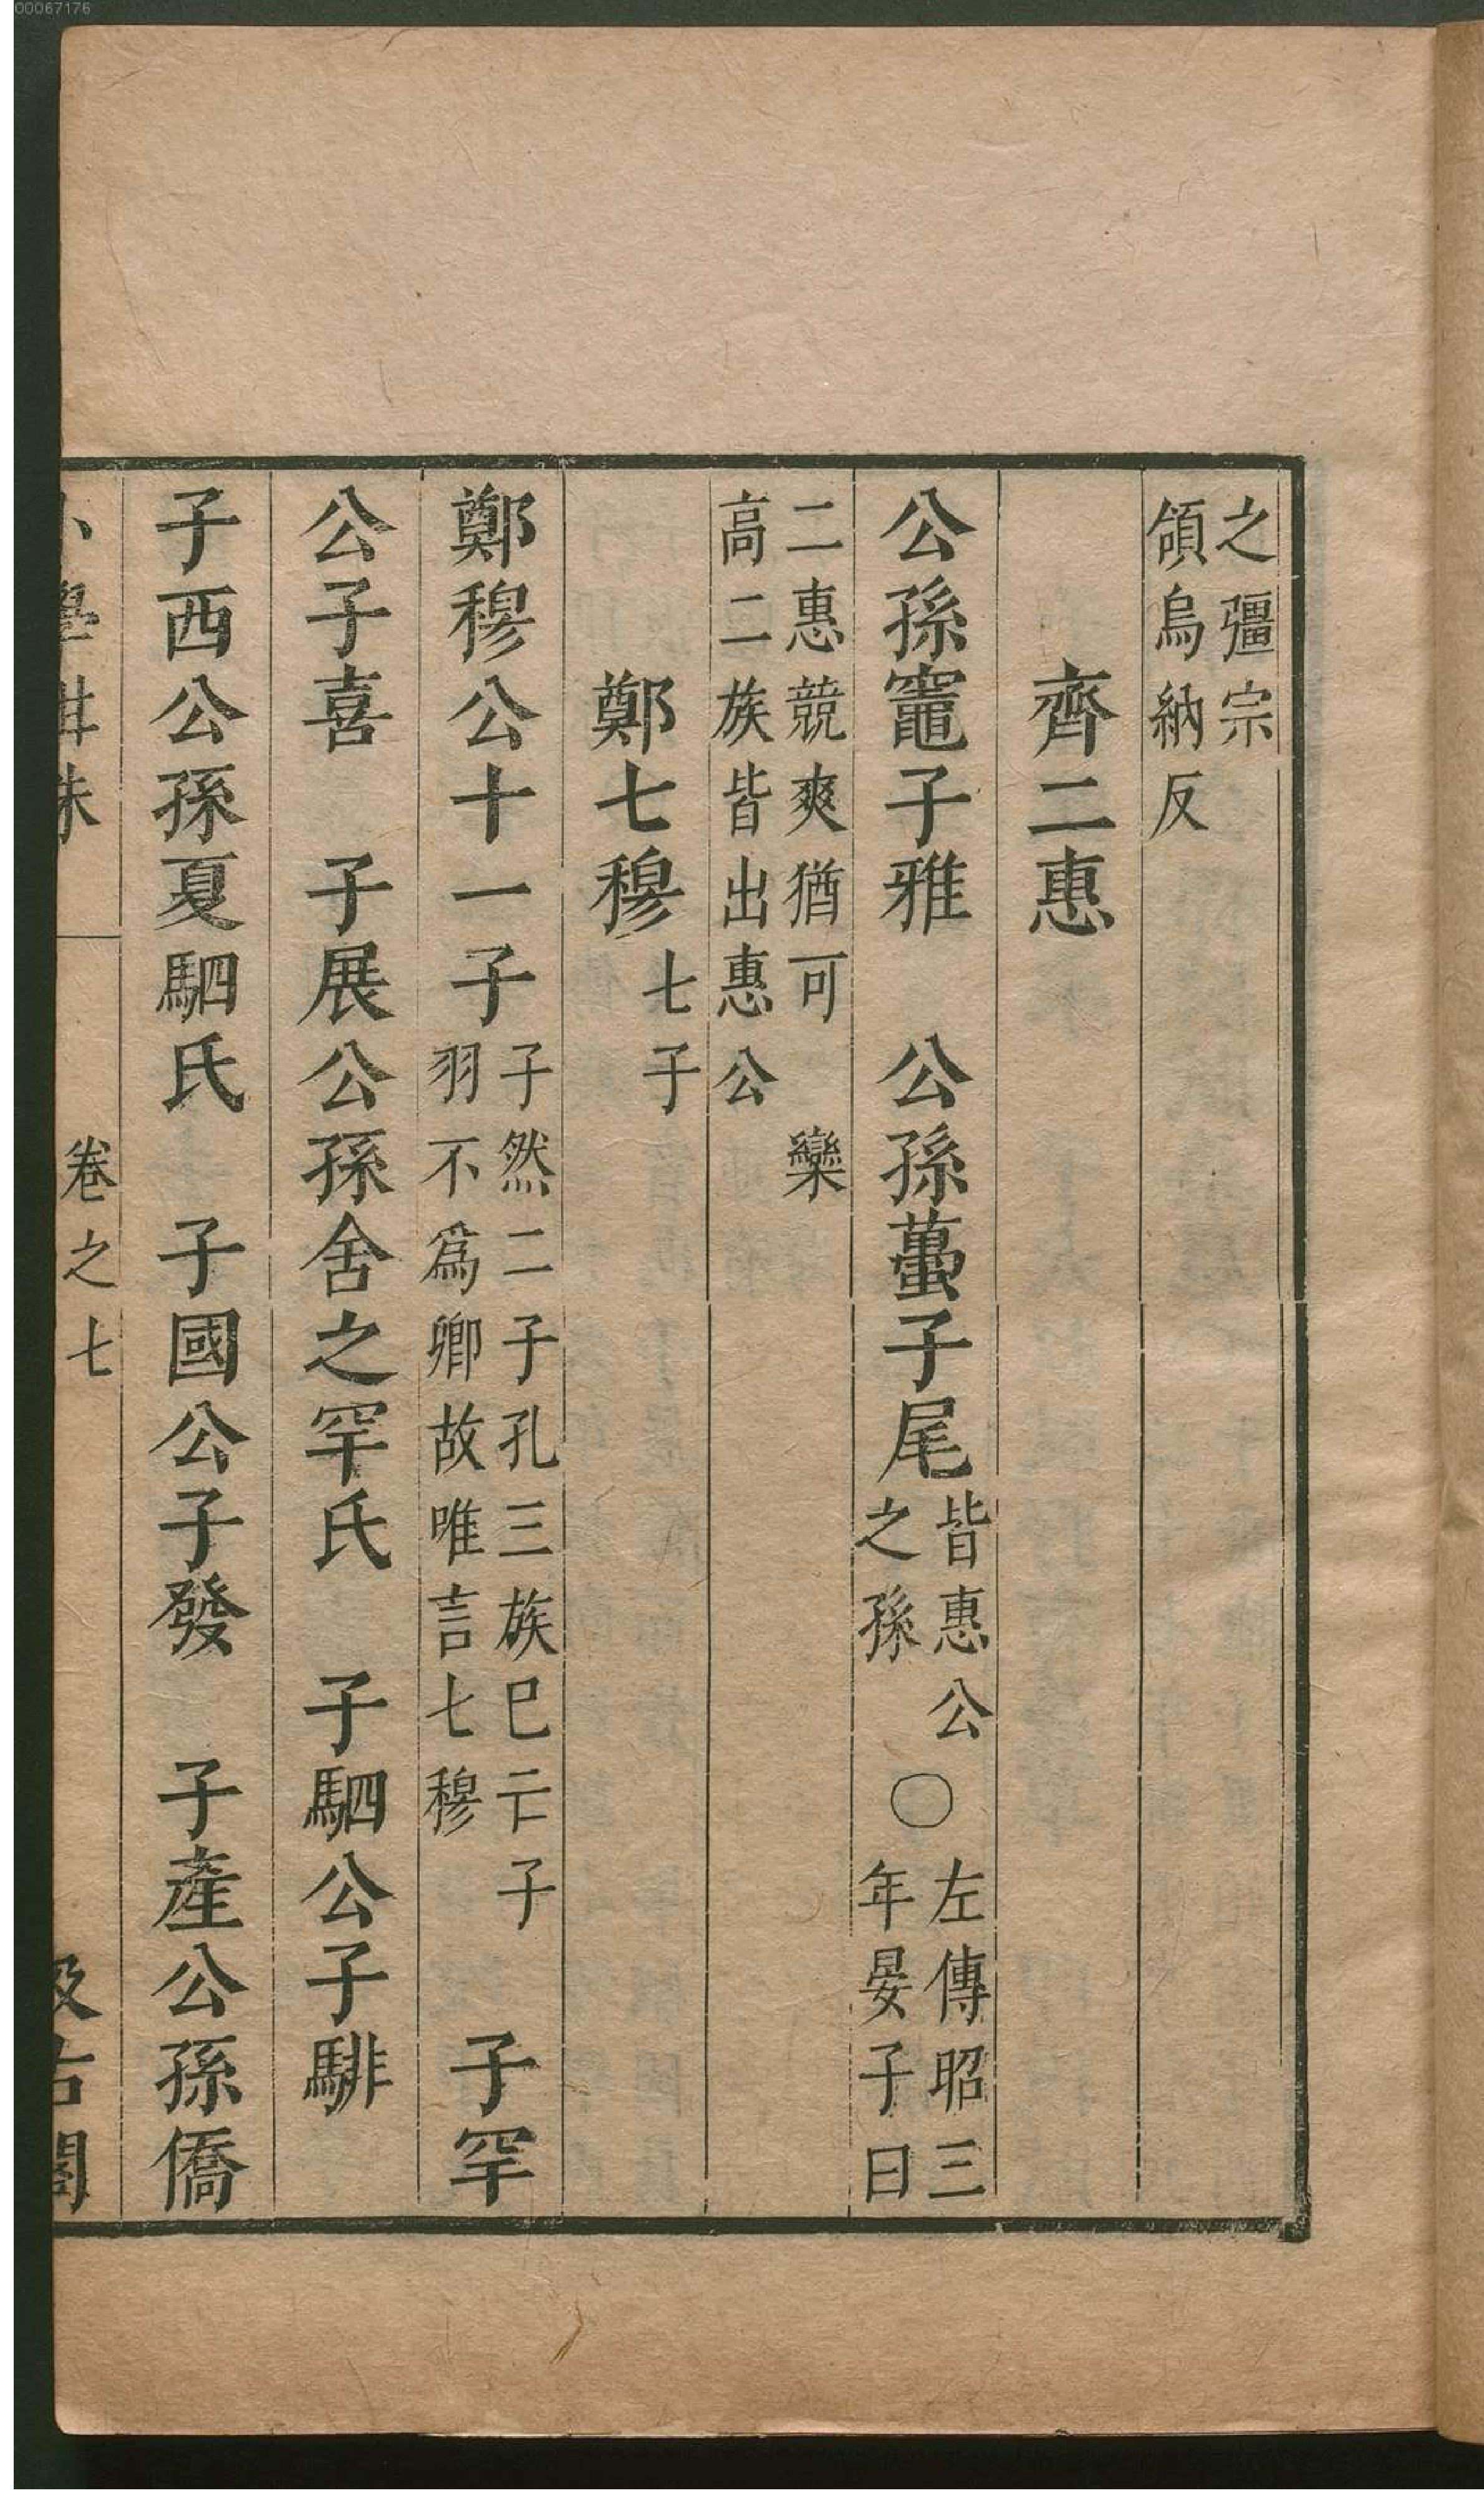 00067176
之彊宗
頜烏納反
齊二惠
公孫竈子雅　公孫蠆子尾皆惠公之孫○左傳昭三年晏子曰
二惠競爽猶可　欒
高二族皆出惠公
鄭七穆七子
鄭穆公十一子子然二子孔三族巳亡子羽不爲卿故唯言七穆　子罕
公子喜　子展公孫舍之罕氏　子駟公子騑
子西公孫夏駟氏　子國公子發　子產公孫僑
小學紺珠　卷之七　汲古閣